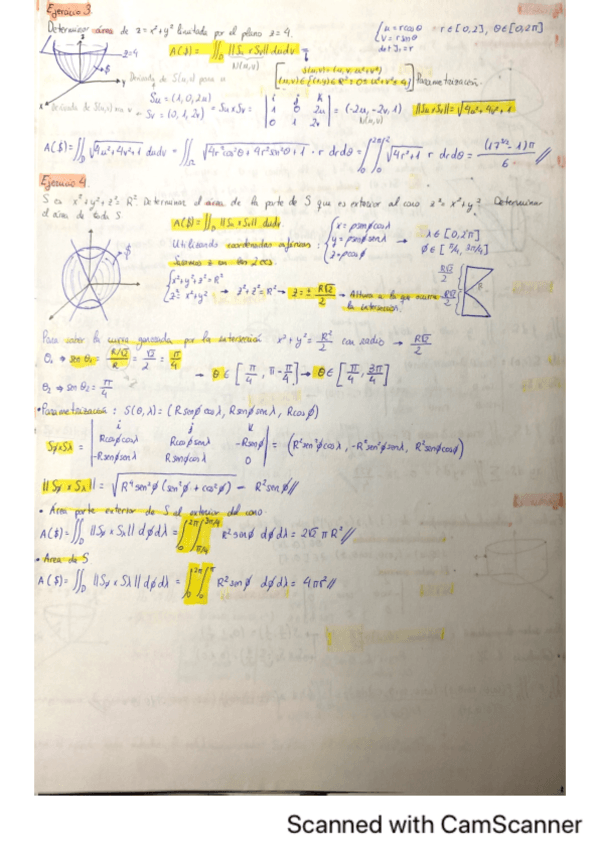 Ejercicio 3
Determinar área de z = x²+y² limitada por el plano z=4.
{u = r cosθ r∈[0,2], θ∈[0,2π]
v = r senθ
A(S) = ∬_D ||Su x Sv|| du dv
z=4
Parametrización.
Derivada de S(u,v) para u
Su = (1, 0, 2u)
Derivada de S(u,v) para v = Sv = (0, 1, 2v)
= Su x Sv = | i j k | 1 0 2u | 0 1 2v | = (-2u, -2v, 1)
||Su x Sv|| = √4u²+4v²+1
A(S) = ∬_D √4u²+4v²+1 du dv = ∬ √4r²cos²θ+4r²sen²θ+1 · r dr dθ = ∫₀^2π ∫₀^2 √4r²+1 r dr dθ = (17^3/2 - 1)π / 6 //
Ejercicio 4.
S es x²+y²+z² = R². Determinar el área de la parte de S que es exterior al cono z² = x²+y². Determinar
el área de toda S
A(S) = ∬_D ||Su x Sv|| du dv
Utilizando coordenadas esféricas:
{x = ρ senϕ cosλ
y = ρ senϕ senλ
z = ρ cosϕ
→ λ∈[0,2π]
ϕ∈[π/4, 3π/4]
{x²+y²+z² = R²
z² = x²+y²
→ z²+z² = R² → z = ± R√2/2 → Altura a la que ocurre
la intersección.
R√2/2
R
Para saber la curva generada por la intersección x²+y² = R²/2 con radio → R√2/2
θ₁ → sen θ₁ = R/√2 / R = √2/2 = π/4
→ θ∈[π/4, π-π/4] → θ∈[π/4, 3π/4]
θ₂ → sen θ₂ = π/4
• Parametrización: S(θ,λ) = (R senϕ cosλ, R senϕ senλ, R cosϕ)
Sϕ x Sλ = | i j k | R cosϕ cosλ R cosϕ senλ -R senϕ | -R senϕ senλ R senϕ cosλ 0 | = (R² sen²ϕ cosλ, -R² sen²ϕ senλ, R² senϕ cosϕ)
||Sϕ x Sλ|| = √R⁴ sen²ϕ (sen²ϕ + cos²ϕ) = R² senϕ //
• Área parte exterior de S al exterior del cono
A(S) = ∬_D ||Sϕ x Sλ|| dϕ dλ = ∫₀^2π ∫_π/4^3π/4 R² senϕ dϕ dλ = 2√2 π R² //
• Área de S
A(S) = ∬_D ||Sϕ x Sλ|| dϕ dλ = ∫₀^2π ∫₀^π R² senϕ dϕ dλ = 4πr² //
Scanned with CamScanner